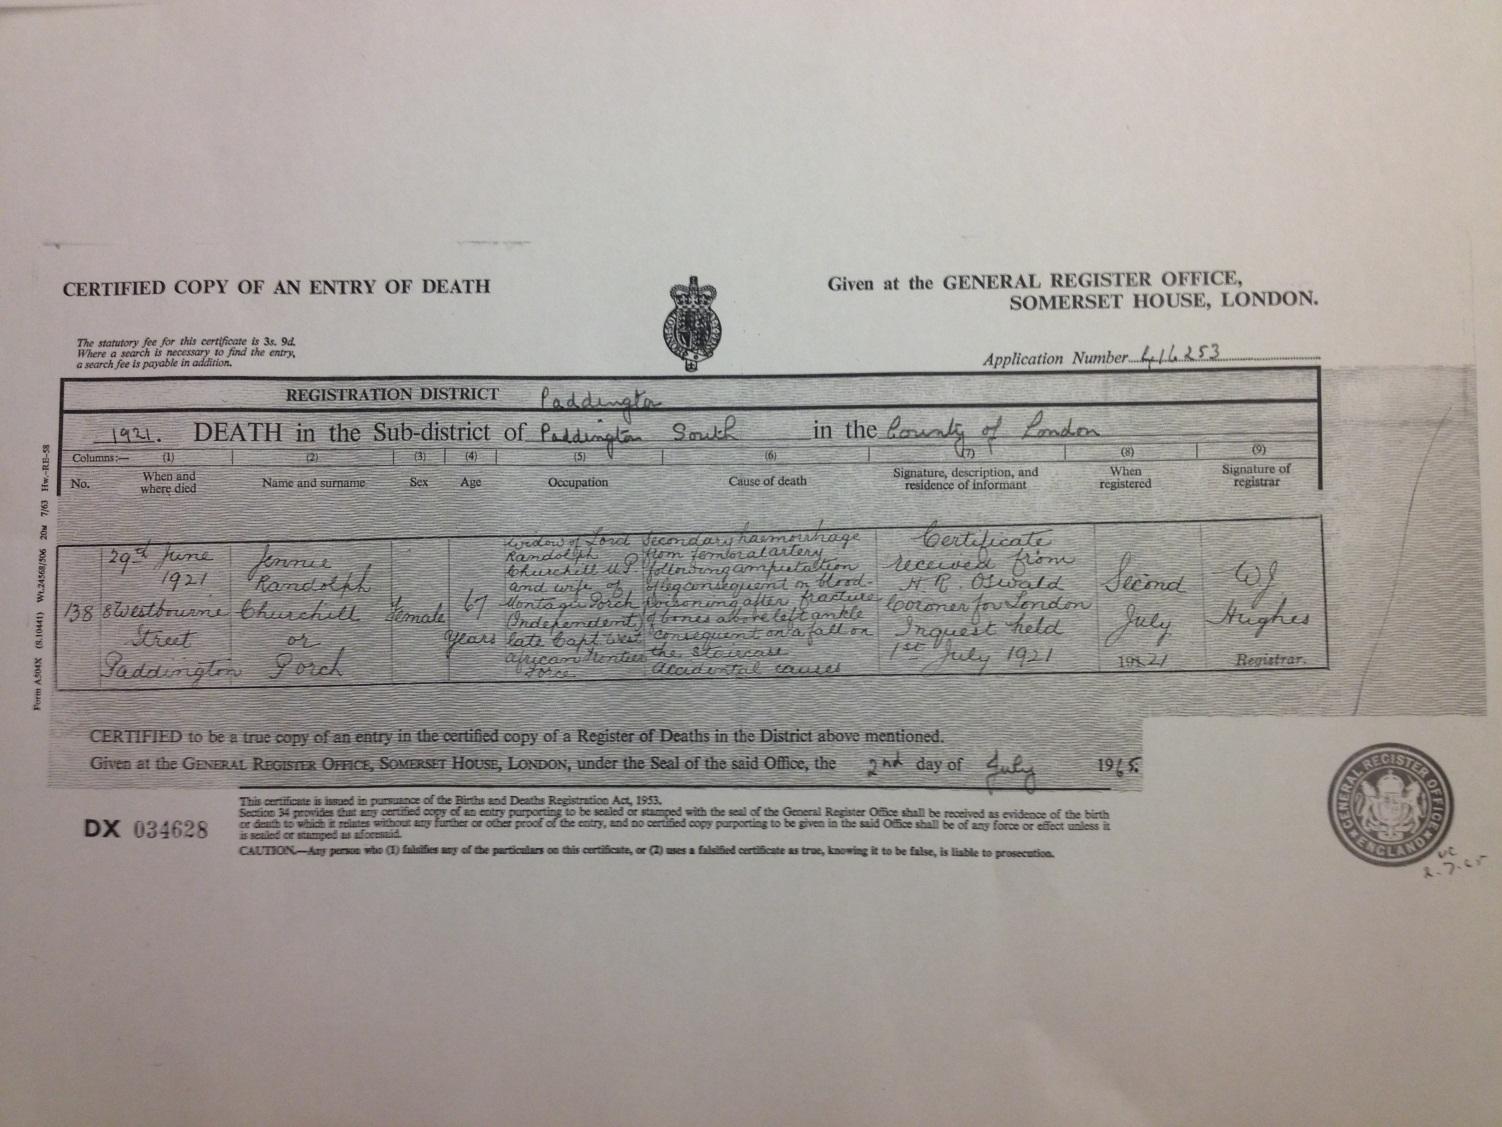 CERTIFIED COPY OF AN ENTRY OF DEATH
Given at the GENERAL REGISTER OFFICE,
SOMERSET HOUSE, LONDON.
The statutory fee for this certificate is 3s. 9d.
Where a search is necessary to find the entry,
a search fee is payable in addition.
Application Number 416253
REGISTRATION DISTRICT Paddington
1921. DEATH in the Sub-district of Paddington South in the County of London
Columns:— (1) (2) (3) (4) (5) (6) (7) (8) (9)
No.
When and
where died
Name and surname
Sex
Age
Occupation
Cause of death
Signature, description, and
residence of informant
When
registered
Signature of
registrar
138
29th June
1921
8 Westbourne
Street
Paddington
Jennie
Randolph
Churchill
or
Porch
Female
67
years
Widow of Lord
Randolph
Churchill M P
and wife of
Montagu Porch
(Independent)
late Capt West
African Frontier
Force
Secondary haemorrhage
from femoral artery
following amputation
of leg consequent on blood-
poisoning after fracture
of bones above left ankle
consequent on a fall on
the staircase
Accidental causes
Certificate
received from
H. R. Oswald
Coroner for London
Inquest held
1st July 1921
Second
July
1921
WJ
Hughes
Registrar.
CERTIFIED to be a true copy of an entry in the certified copy of a Register of Deaths in the District above mentioned.
Given at the GENERAL REGISTER OFFICE, SOMERSET HOUSE, LONDON, under the Seal of the said Office, the 2nd day of July 1965.
DX 034628
This certificate is issued in pursuance of the Births and Deaths Registration Act, 1953.
Section 34 provides that any certified copy of an entry purporting to be sealed or stamped with the seal of the General Register Office shall be received as evidence of the birth
or death to which it relates without any further or other proof of the entry, and no certified copy purporting to be given in the said Office shall be of any force or effect unless it
is sealed or stamped as aforesaid.
CAUTION.—Any person who (1) falsifies any of the particulars on this certificate, or (2) uses a falsified certificate as true, knowing it to be false, is liable to prosecution.
GENERAL REGISTER OFFICE
ENGLAND
2.7.65
Form A504X (S.10441) Wt.24568/506 20m 7/63 Hw.-RE-58